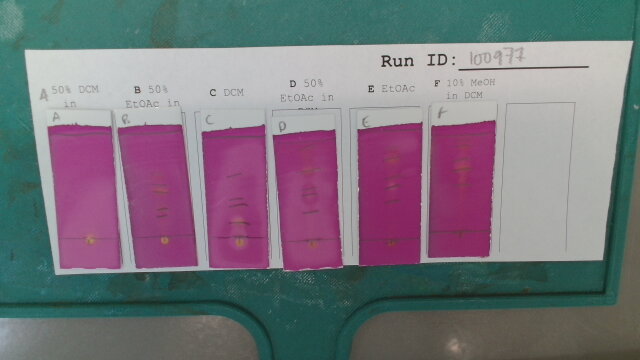 Run ID: 100977
A 50% DCM in
B 50% EtOAc in
C DCM
D 50% EtOAc in
E EtOAc
F 10% MeOH in DCM
A
B
C
D
E
F